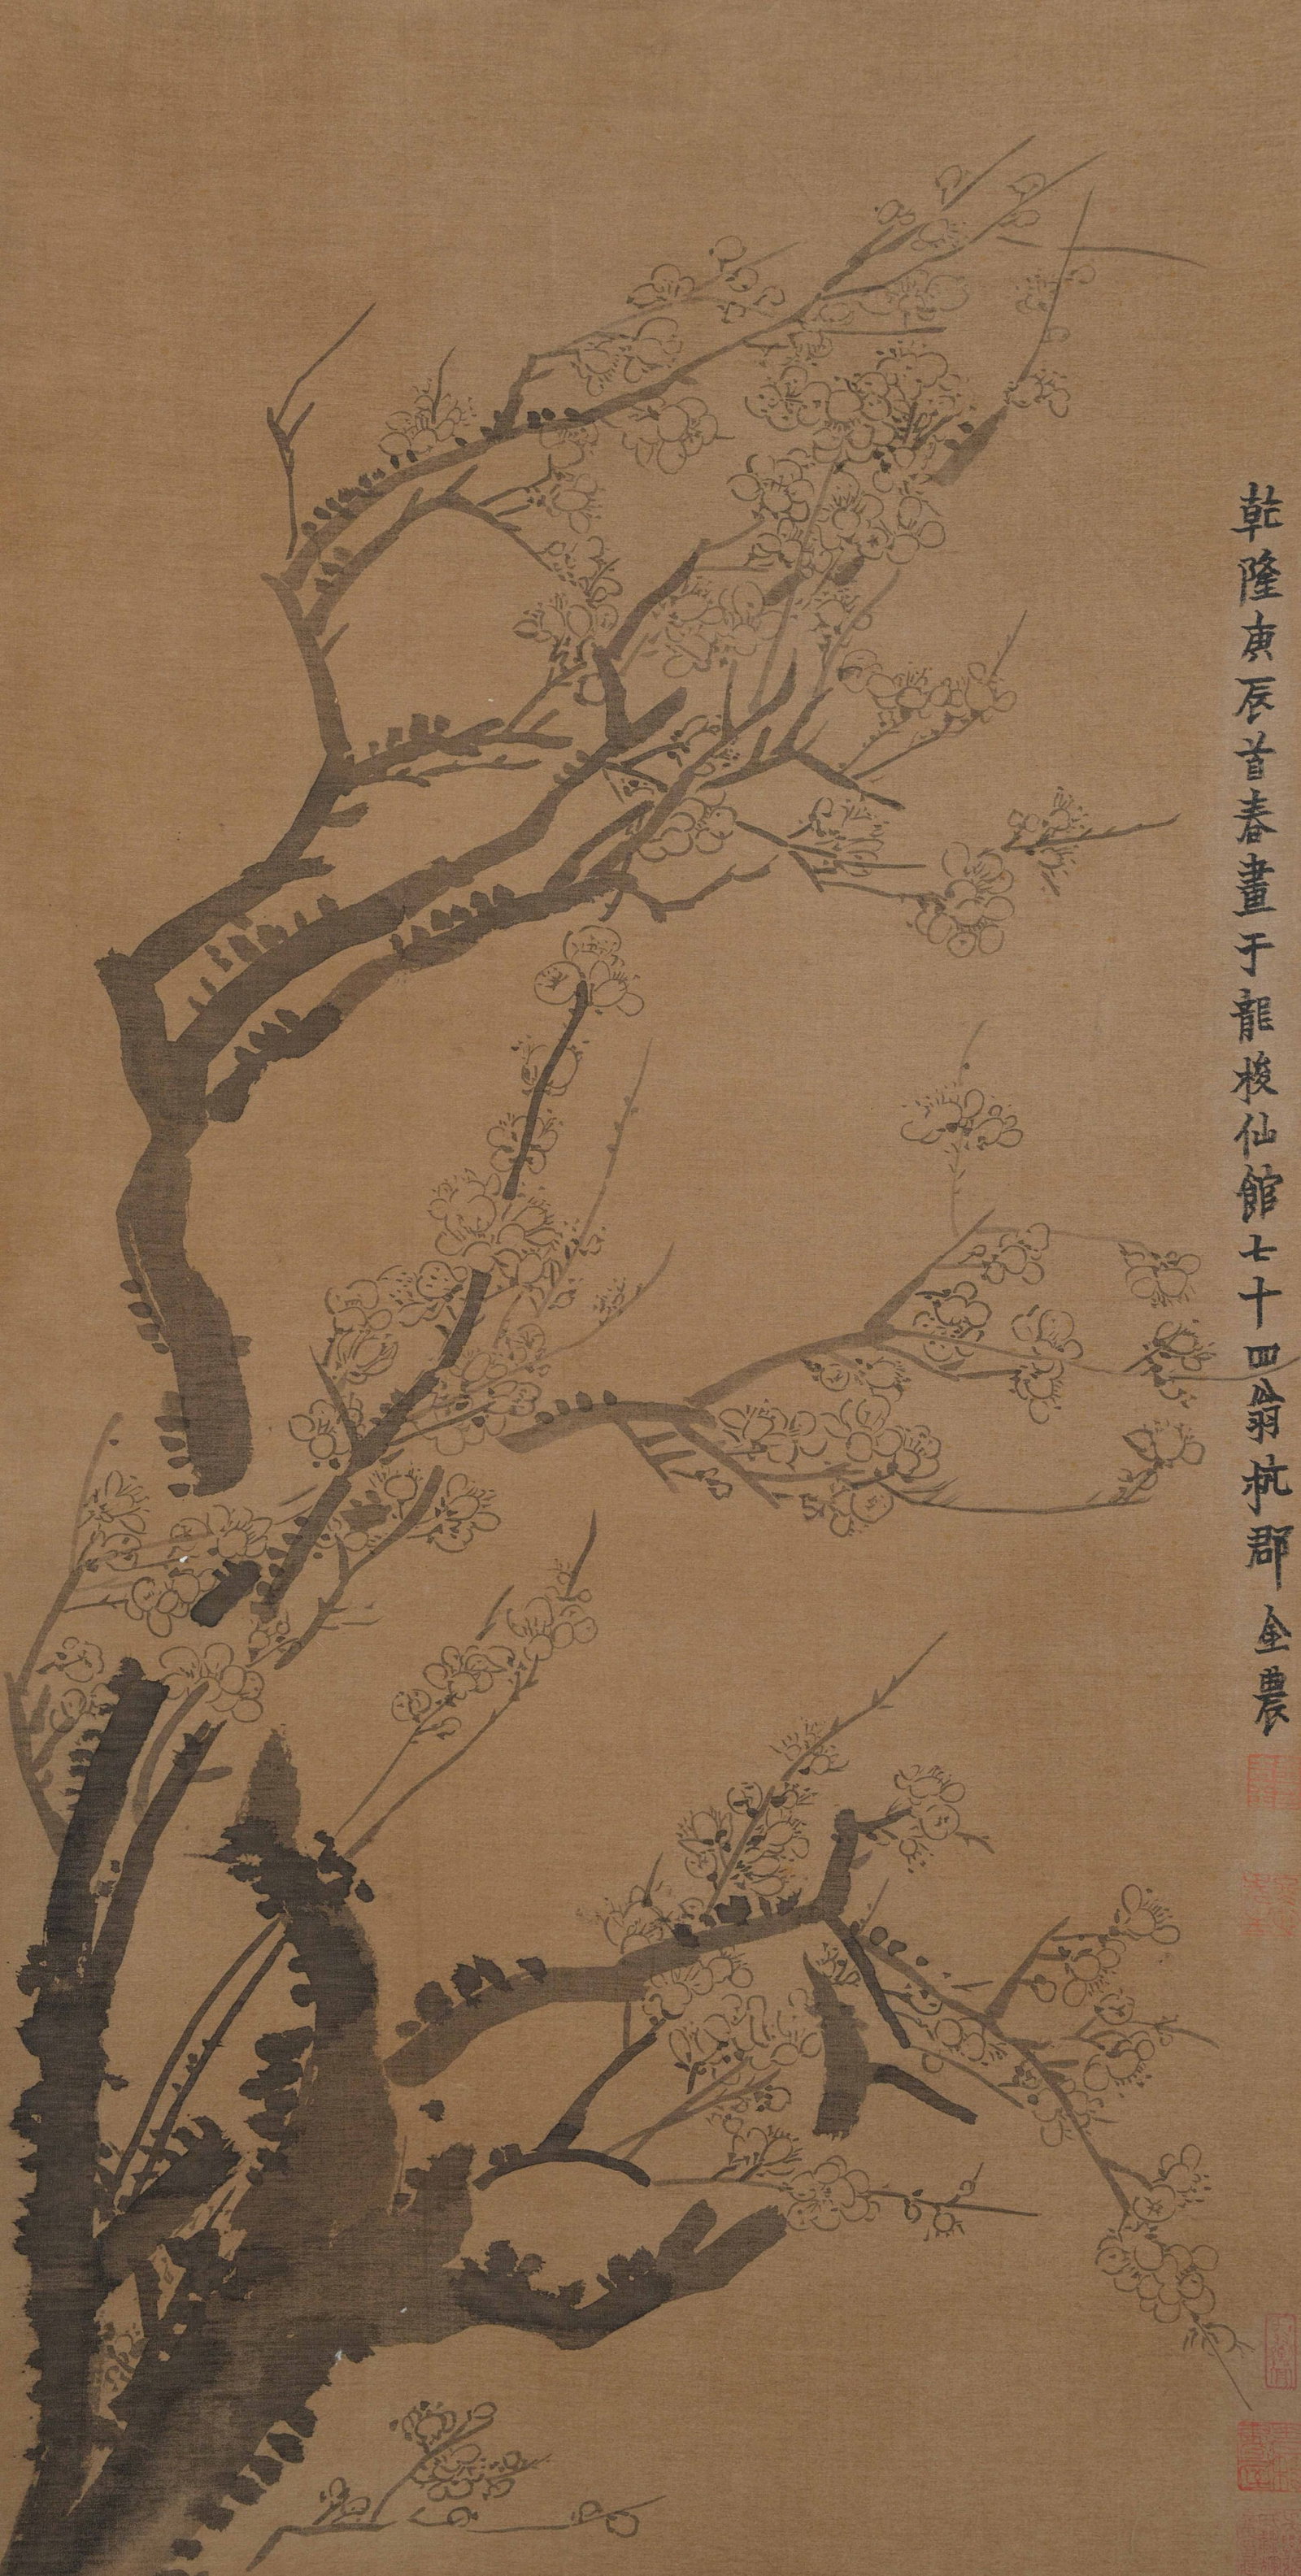 乾隆庚辰首春畫于龍梭仙館七十四翁杭郡金農